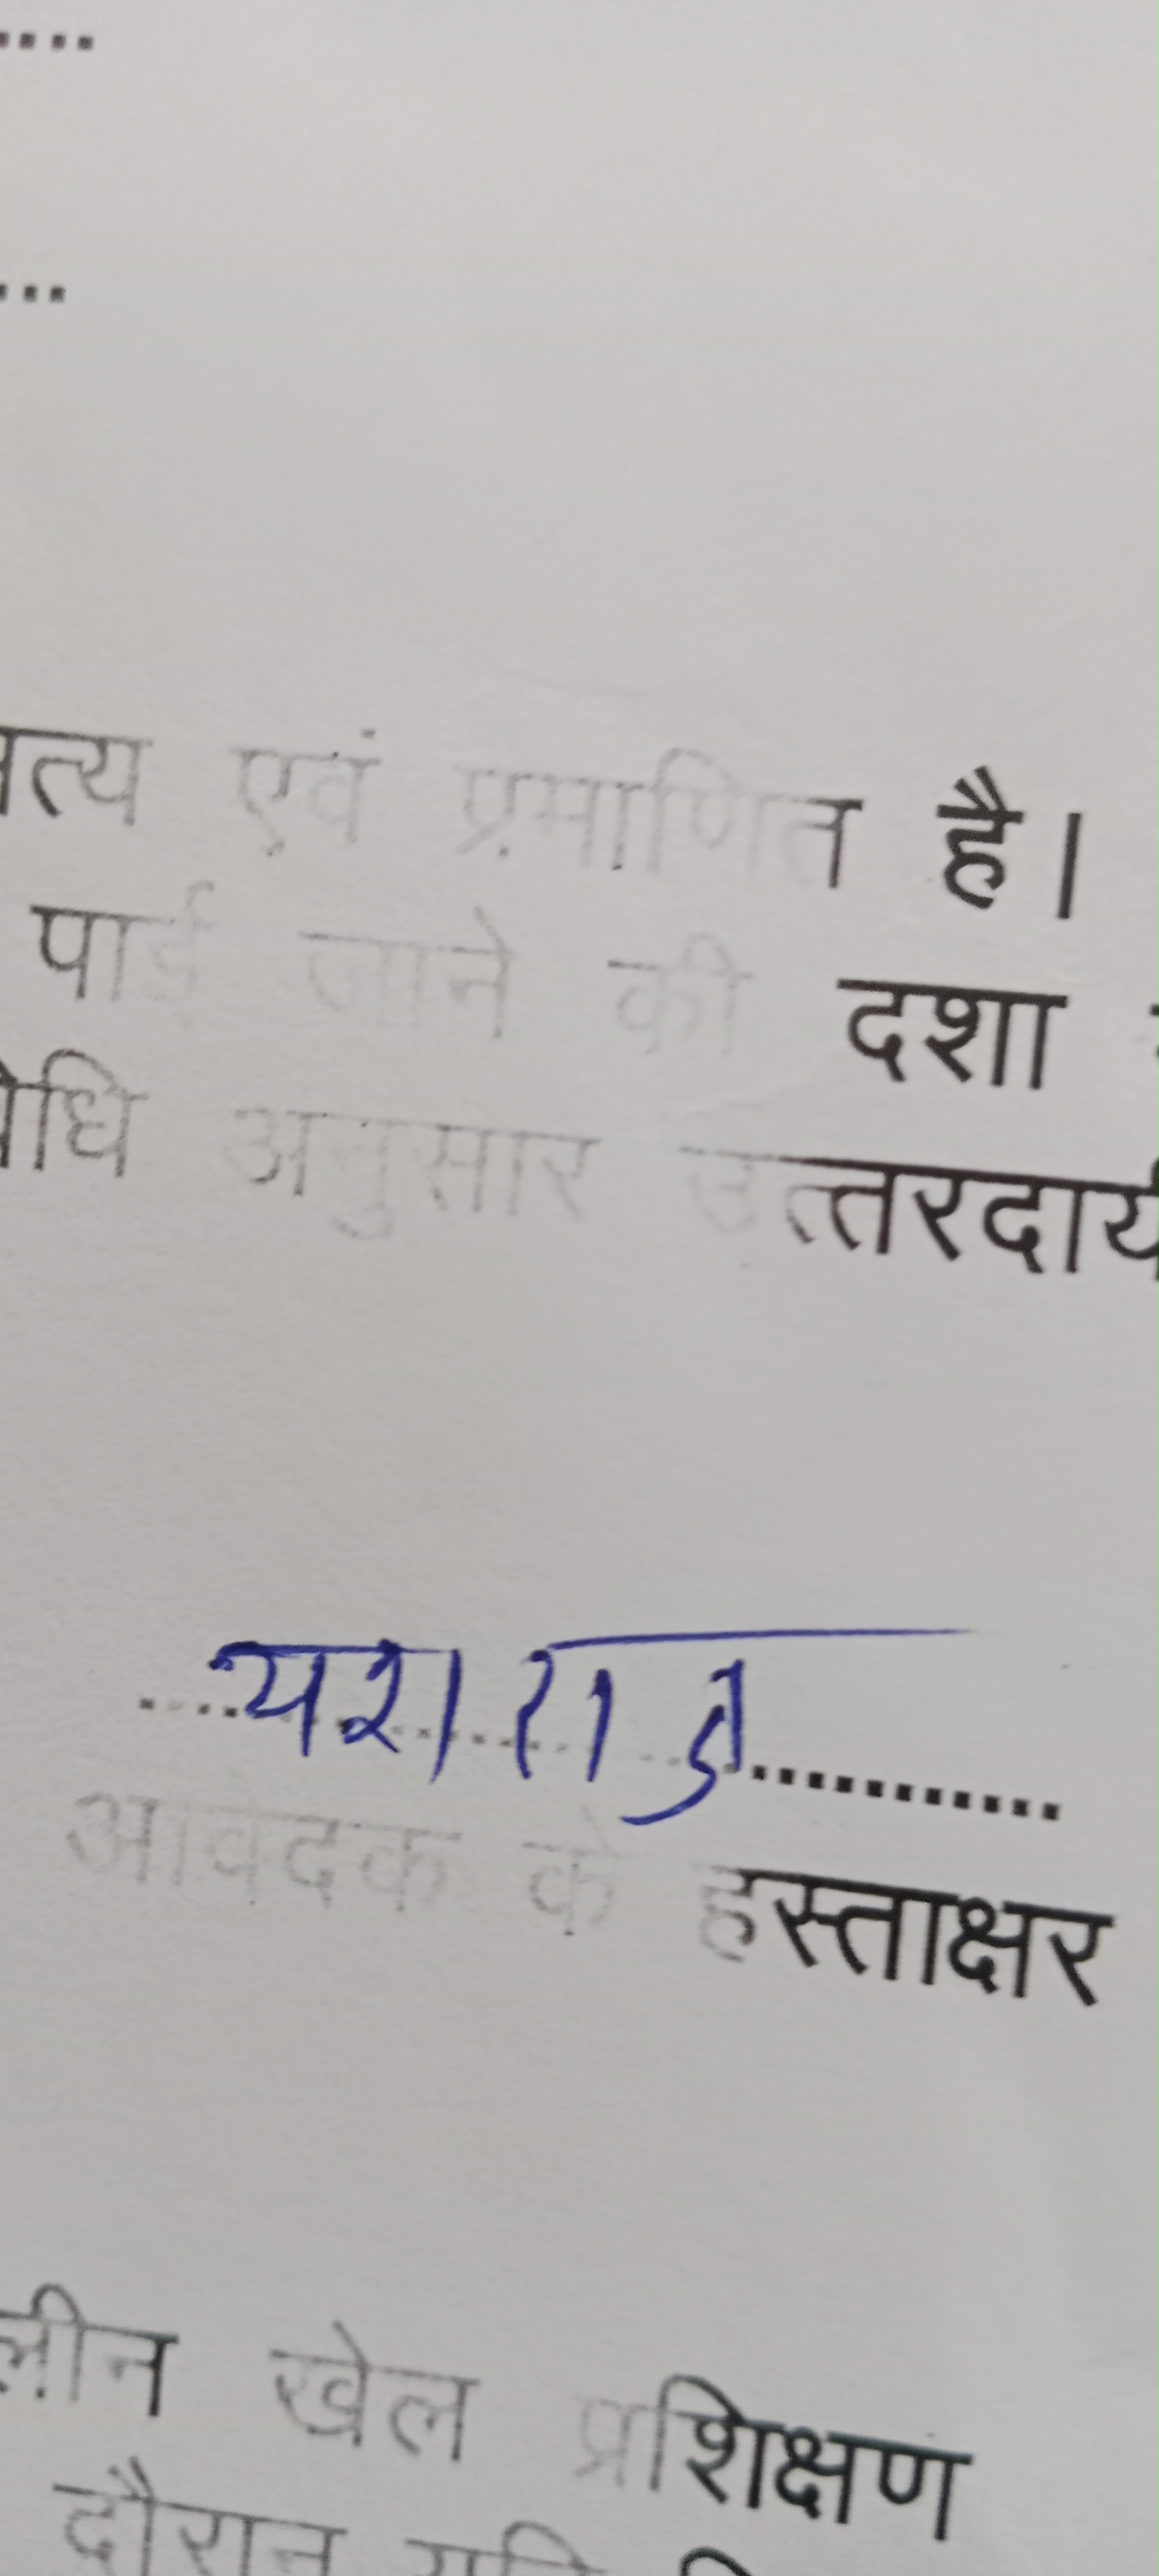 ....
...
सत्य एवं प्रमाणित है।
पाई जाने की दशा
विधि अनुसार उत्तरदायी
यश राज
आवेदक के हस्ताक्षर
लीन खेल प्रशिक्षण
दौरान यदि